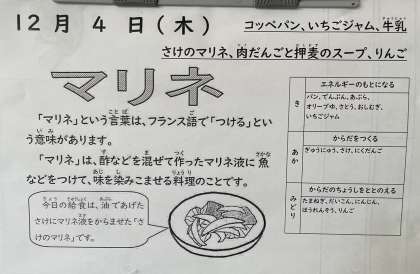 12月 4 日(木)
コッペパン、いちごジャム、牛乳
さけのマリネ、肉だんごと押麦のスープ、りんご
マリネ
「マリネ」という言葉は、フランス語で「つける」とい
う意味があります。
「マリネ」は、酢などを混ぜて作ったマリネ液に魚
などをつけて、味を染みこませる料理のことです。
今日の給食は、油であげた
さけにマリネ液をからませた「さ
けのマリネ」です。
き
エネルギーのもとになる
パン、でんぷん、あぶら、
オリーブゆ、さとう、おしむぎ、
いちごジャム
あか
からだをつくる
ぎゅうにゅう、さけ、にくだんご
みどり
からだのちょうしをととのえる
たまねぎ、だいこん、にんじん、
ほうれんそう、りんご